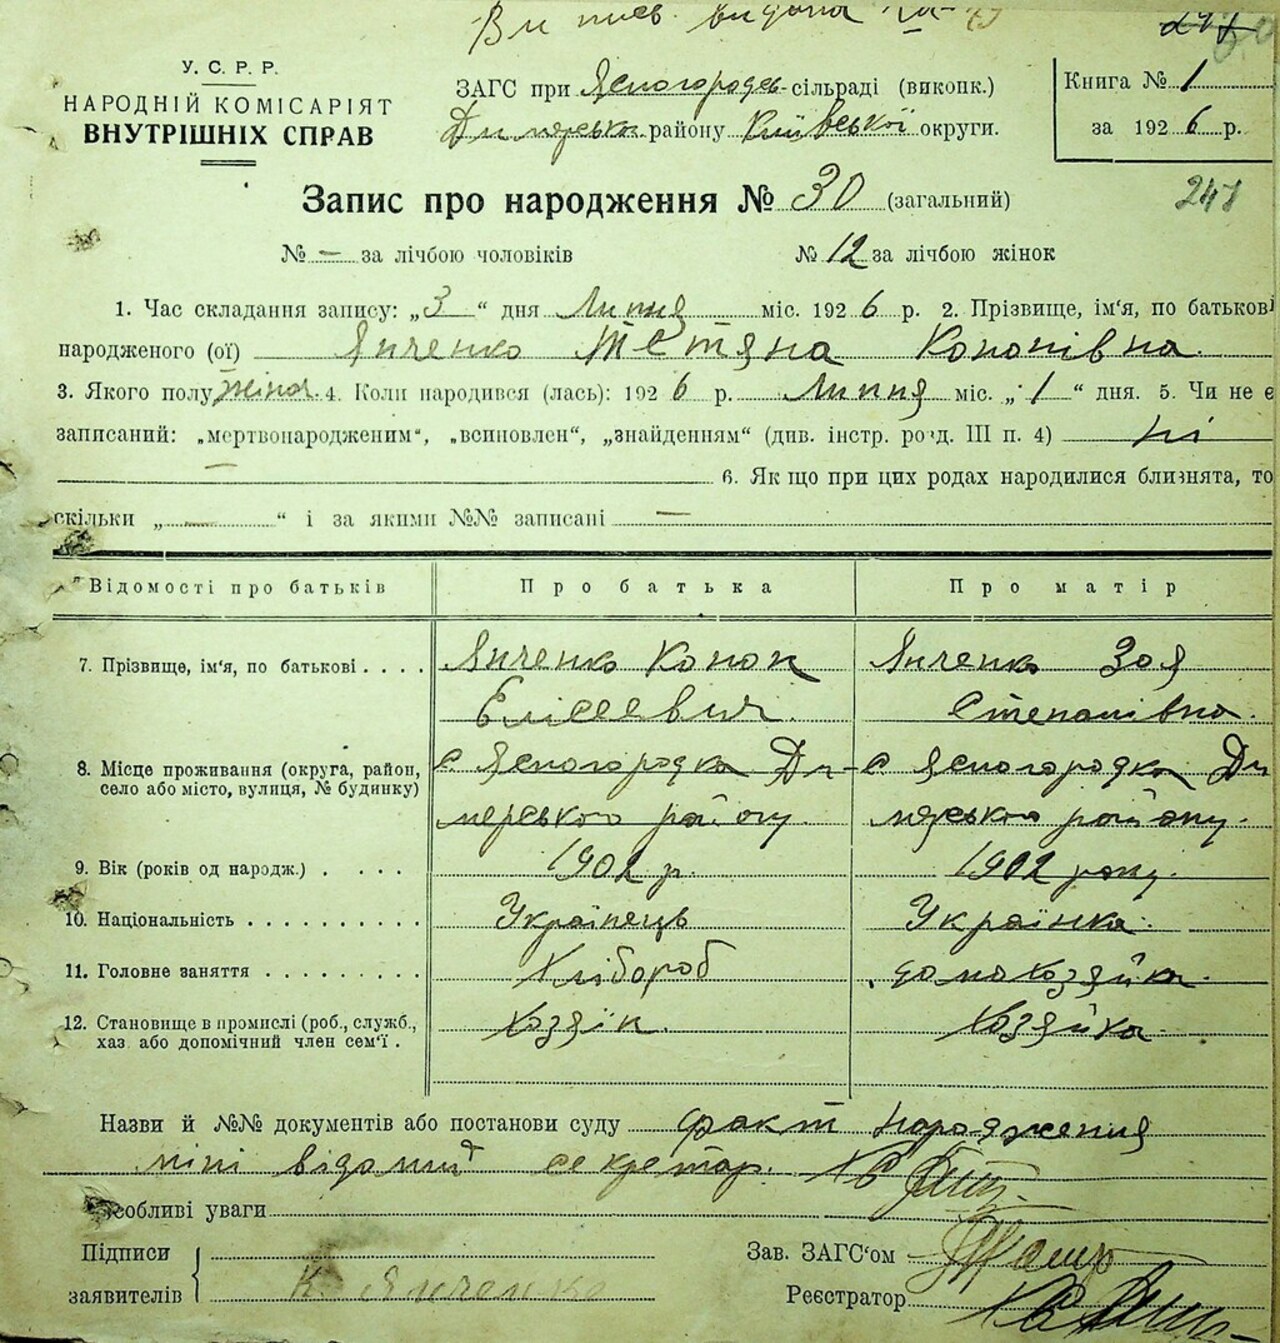 Ви пись. видана
241
У. С. Р. Р.
НАРОДНІЙ КОМІСАРІЯТ
ВНУТРІШНІХ СПРАВ
ЗАГС при Ясногородсь-сільраді (виконк.)
Димерсько. району Київської округи.
Книга № 1
за 1926 р.
Запис про народження № 30 (загальний)
247
№ — за лічбою чоловіків № 12 за лічбою жінок
1. Час складання запису: „3“ дня Липня міс. 1926 р. 2. Прізвище, ім'я, по батькові
народженого (ої) Янченко Тетяна Кононівна.
3. Якого полу жіноч. 4. Коли народився (лась): 1926 р. Липня міс. „1“ дня. 5. Чи не є
записаний: „мертвонародженим“, „всиновлен“, „знайденням“ (див. інстр. розд. III п. 4) ні
— 6. Якщо при цих родах народилися близнята, то
скільки „—“ і за якими №№ записані —
Відомості про батьків Про батька Про матір
7. Прізвище, ім'я, по батькові . . . . Янченко Конон Янченко Зоя
Єлісеєвич. Степанівна.
8. Місце проживання (округа, район, с. Ясногородка Ди- с. Ясногородка Ди
село або місто, вулиця, № будинку) мерського району. мерського району.
9. Вік (років од народж.) . . . . 1902 р. 1902 року.
10. Національність . . . . . . . . . . Українець Українка.
11. Головне заняття . . . . . . . . . Хлібороб домохозяйка.
12. Становище в промислі (роб., служб., Хозяїн. Хозяйка.
хаз. або допомічний член сем'ї .
Назви й №№ документів або постанови суду факт народження
міні відомий секретар.
Особливі уваги
Підписи
заявителів К. Янченко
Зав. ЗАГС'ом
Реєстратор